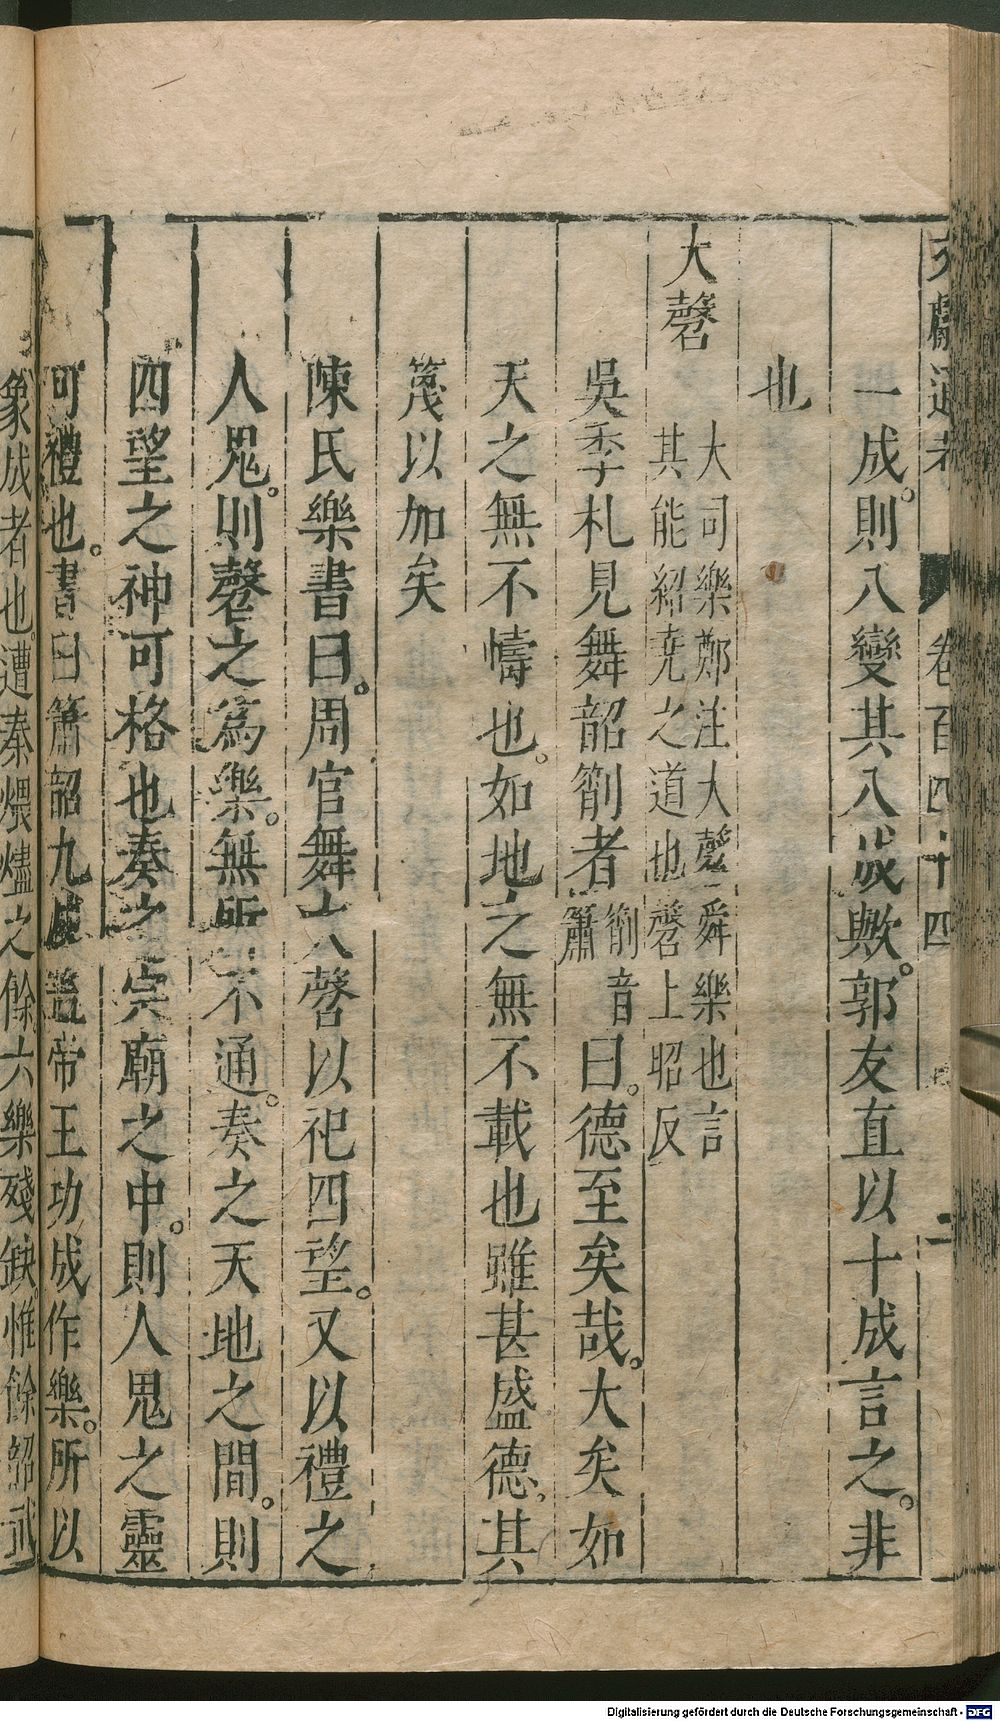 文獻通考 卷百四十四 二
一成。則八變其八成歟。郭友直以十成言之。非
也
大磬 大司樂鄭注大磬舜樂也言
其能紹堯之道也磬上昭反
吳季札見舞韶箾者 箾音
簫 曰。德至矣哉。大矣如
天之無不幬也。如地之無不載也雖甚盛德。其
蔑以加矣
陳氏樂書曰。周官舞大磬以祀四望。又以禮之
人鬼。則磬之為樂。無所不通。奏之天地之間。則
四望之神可格也奏之宗廟之中。則人鬼之靈
可禮也。書曰簫韶九成蓋帝王功成作樂。所以
象成者也。遭秦煨燼之餘。六樂殘缺。惟餘韶武
Digitalisierung gefördert durch die Deutsche Forschungsgemeinschaft - DFG